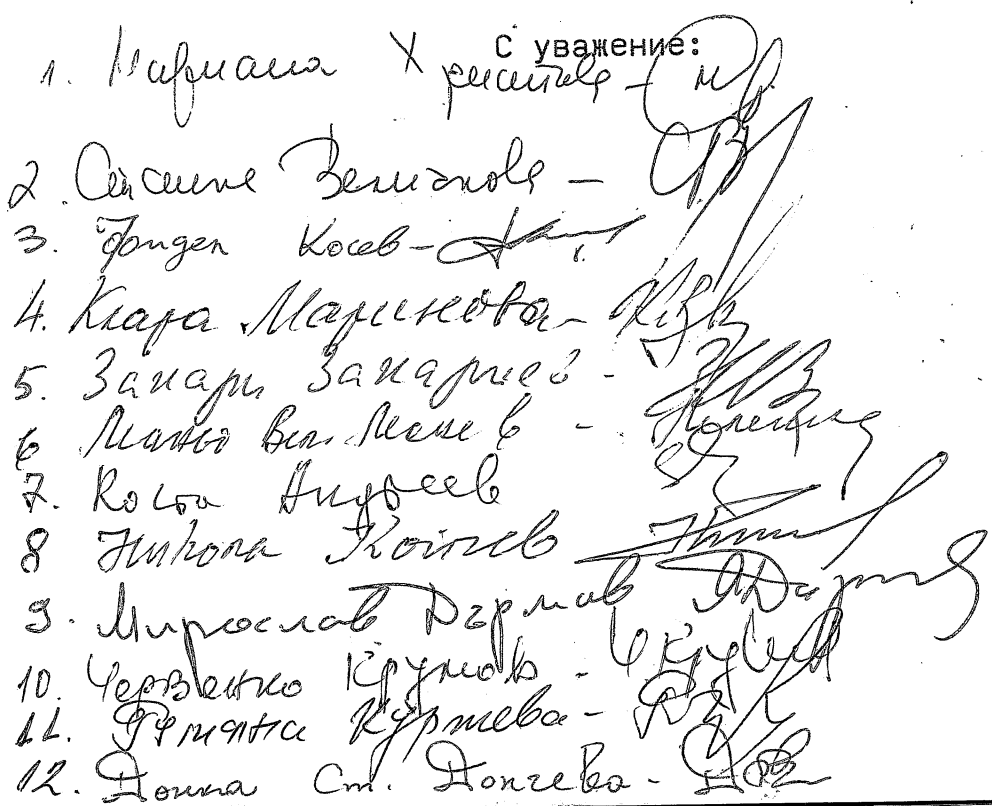 С уважение:
1. Мариана Христова -
2. Величкова -
3. Косев -
4. Клара Маринова -
5. Захари Захариев -
6 Маньо Вел. Манев -
7. Коста Андреев
8 Никола Койчев
9. Мирослав Дърмов
10. Червенко Крумов -
11. Румяна Куртева -
12. Донка Ст. Дончева -